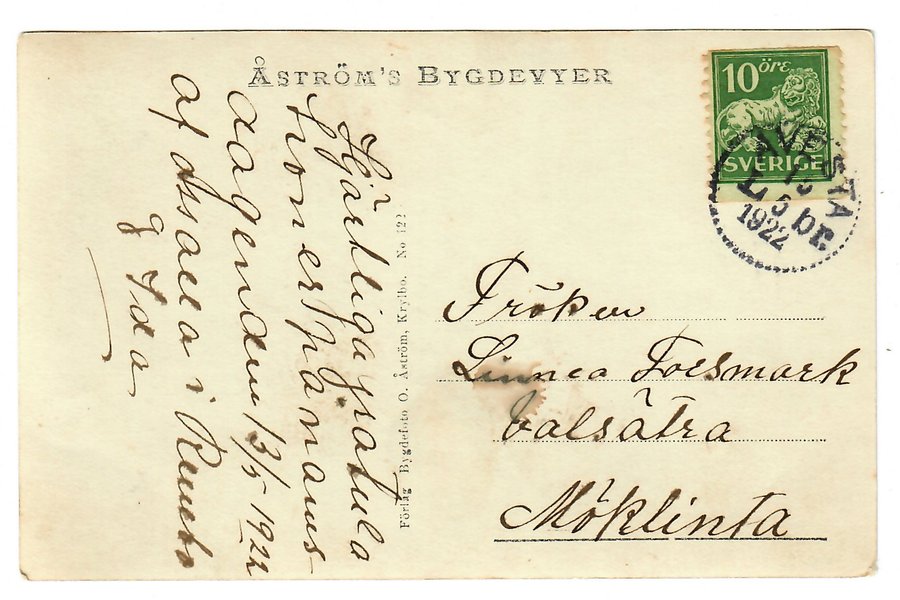 ÅSTRÖM'S BYGDEVYER
10 öre
SVERIGE
AVESTA
15
5
1922
L br.
Hjärtliga gratula
tioner på namns
dagen den 13/5 1922
af dssaea i Rumbo
g Ida
Förlag Bygdefoto O. Åström, Krylbo. No 122
Fröken
Linnea Forsmark
Valsätra
Möklinta